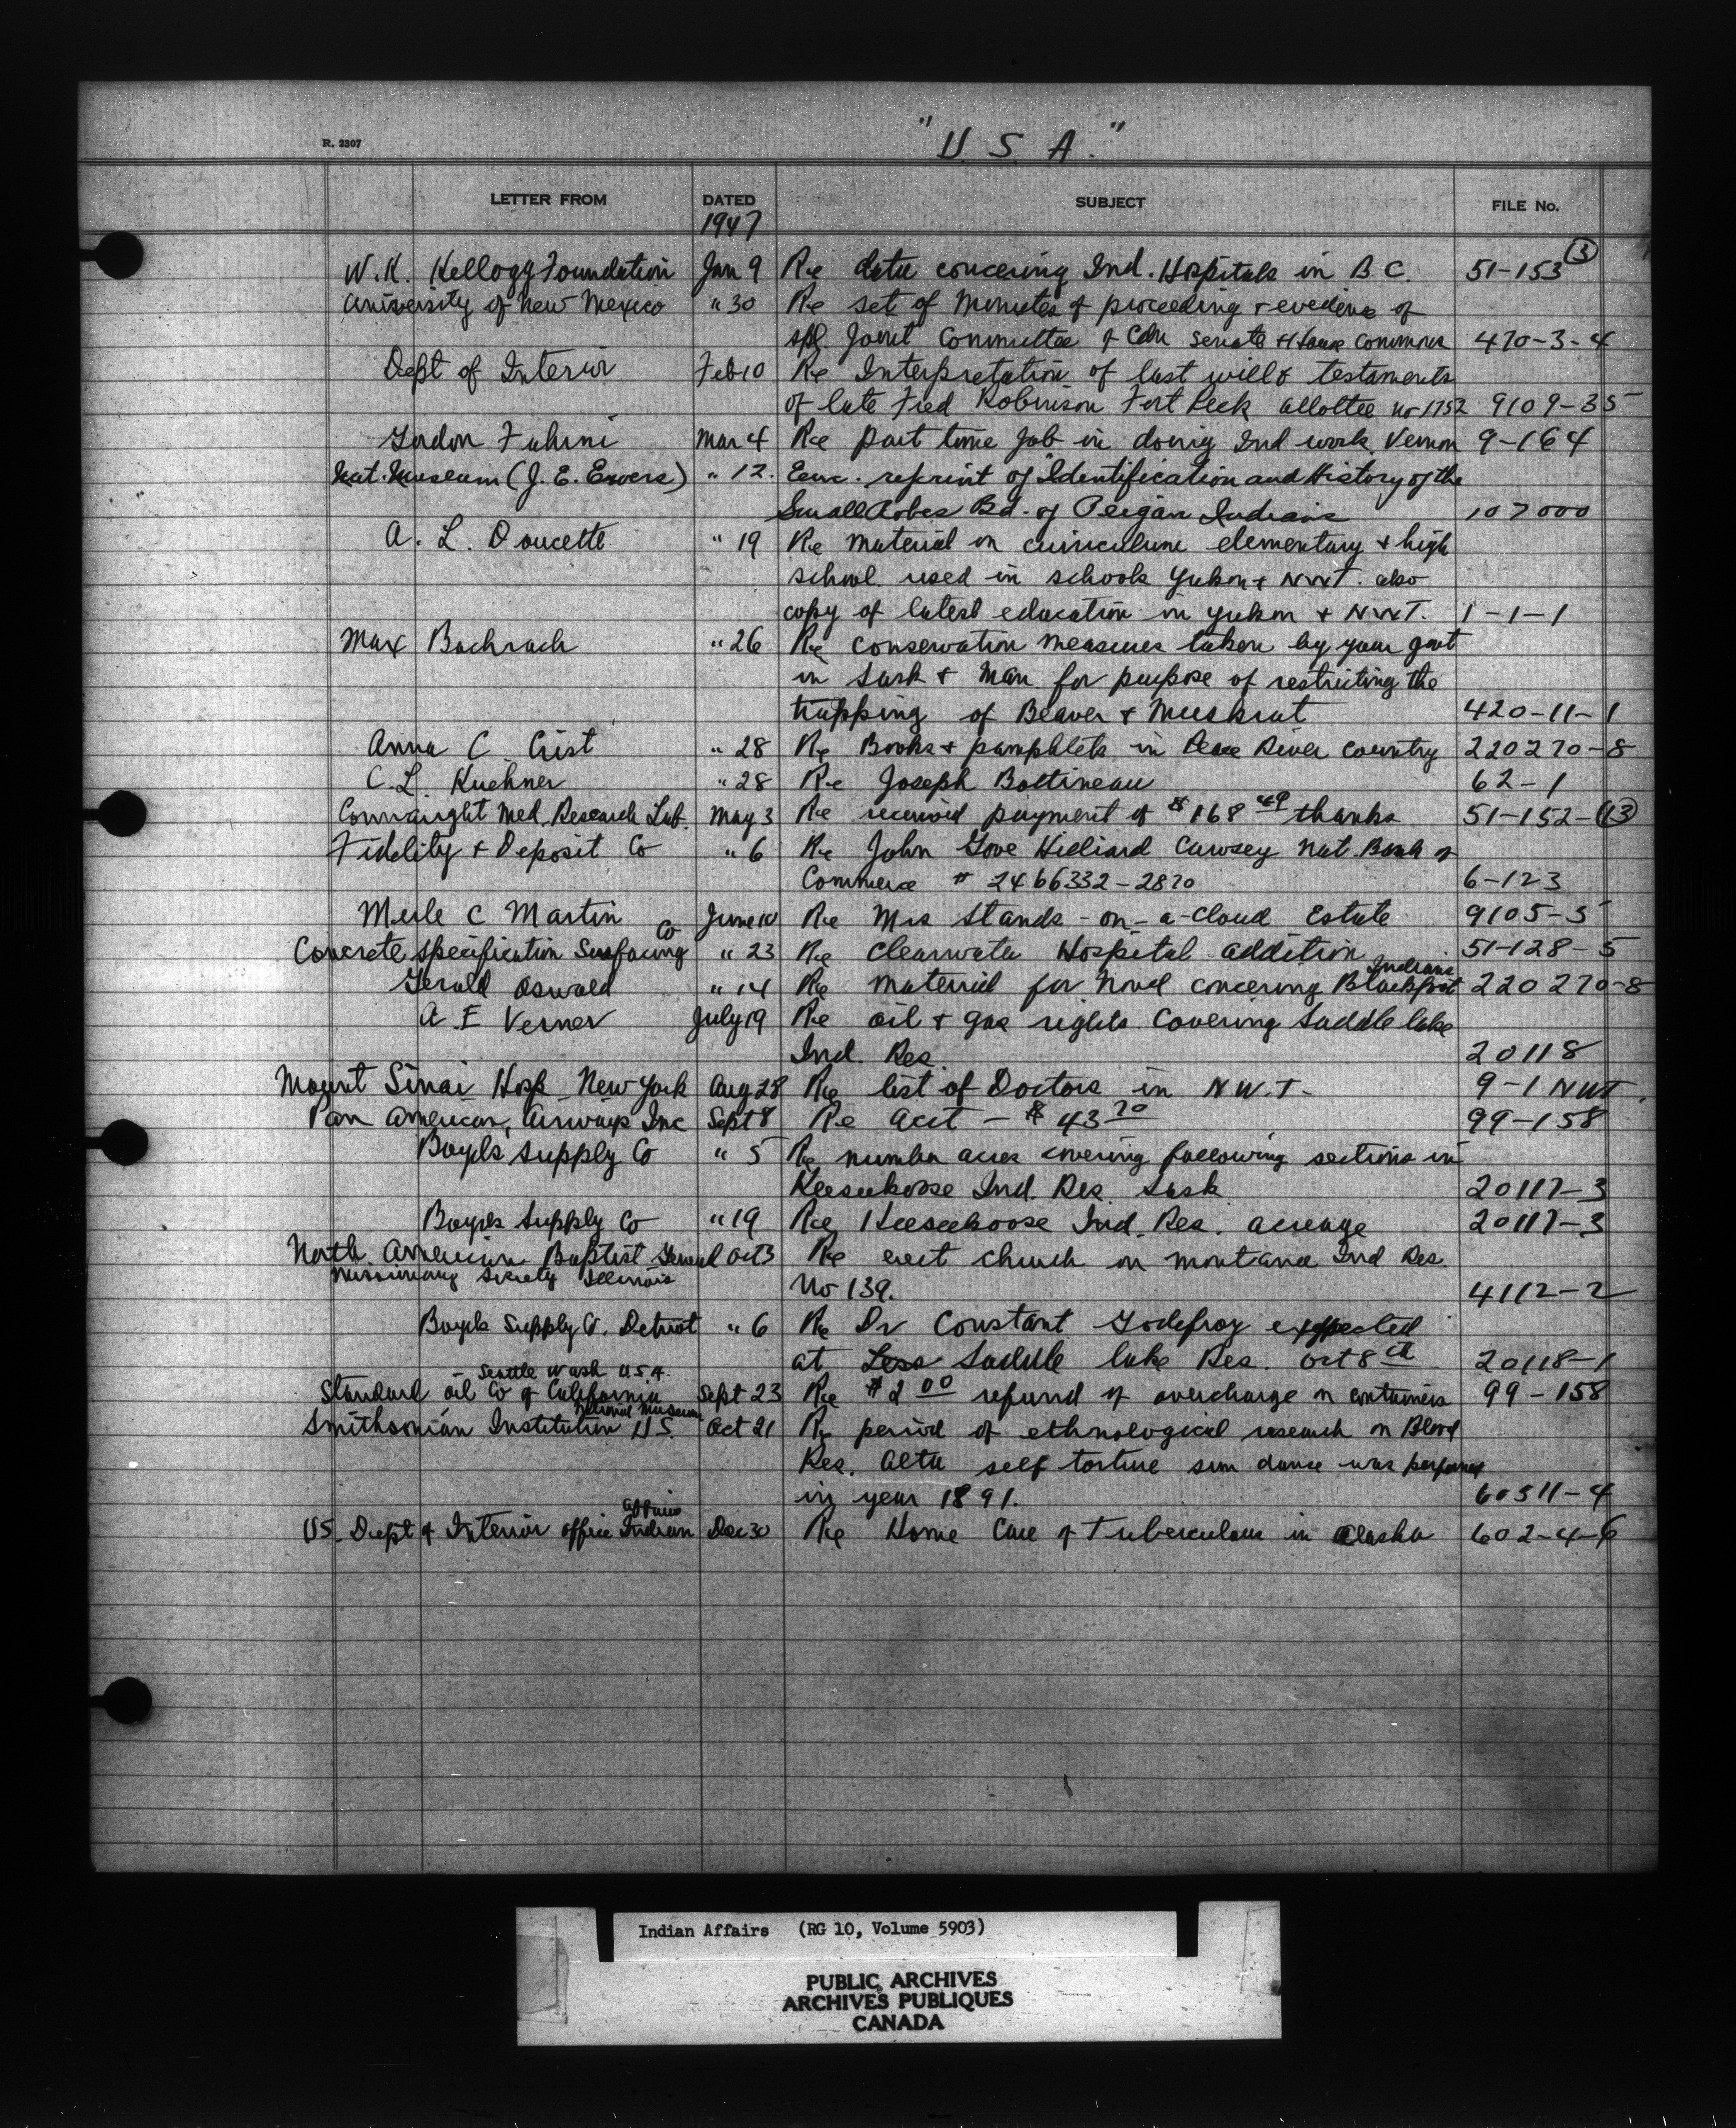 R. 2307
"U. S. A."
LETTER FROM DATED SUBJECT FILE No.
1947
W. K. Kellogg Foundation Jan 9 Re data concering Ind. Hospitals in B.C. 51-153 (3)
University of New Mexico " 30 Re set of Minutes of proceeding & evedince of
spl. Joint Committee of Cdn Senate & House Commons 470-3-4
Dept of Interior Feb 10 Re Interpretation of last will & testaments
of late Fred Robinson Fort Peck allottee no 1752 9109-35
Gordon Fuhrni Mar 4 Re part time job in doing Ind work. Vernon 9-164
Nat. Museum (J. E. Ewers) " 12. Enc. reprint of "Identification and History of the
Small Robes Bd. of Peigan Indians 107000
A. L. Doucette " 19 Re material on curriculum elementary & high
school used in schools Yukon & NWT. also
copy of latest education in Yukon & NWT. 1-1-1
Max Bachrach " 26 Re conservation measures taken by your govt
in Sask & Man for purpose of restricting the
trapping of Beaver & Muskrat 420-11-1
Anna C Crist " 28 Re Books & pamphlets in Peace River Country 220270-8
C. L. Kuehner " 28 Re Joseph Bottineau 62-1
Connaught Med. Research Lab. May 3 Re received payment of $168 49 thanks 51-152-(13)
Fidelity & Deposit Co " 6 Re John Gove Hilliard Cawsey Nat. Bank of
Commerce # 2466332-2870 6-123
Merle C Martin June 10 Re Mrs Stands-on-a-Cloud Estate 9105-5
Co
Concrete Specification Surfacing " 23 Re Clearwater Hospital addition 51-128-5
Indians
Gerald Oswald " 14 Re material for novel concering Blackfoot 220270-8
A E Verner July 19 Re oil & gas rights covering Saddle Lake
Ind. Res. 20118
Mount Sinai Hosp New York Aug 28 Re list of Doctors in N.W.T. 9-1 NWT.
Pan American Airways Inc Sept 8 Re acct - $43 70 99-158
Boyles Supply Co " 5 Re number acres covering following sections in
Keeseekoose Ind. Res. Sask 20117-3
Boyles Supply Co " 19 Re Keeseekoose Ind. Res. acreage 20117-3
North American Baptist General Oct 3 Re erect church on Montana Ind Res.
Missionary Society Illinois
No 139. 4112-2
Boyles Supply Co. Detroit " 6 Re Dr Constant Godefroy expected
at Less Saddle Lake Res. Oct 8th 20118-1
Seattle Wash U.S.A.
Standard Oil Co of California Sept 23 Re $2 00 refund of overcharge on containers 99-158
National Museum
Smithsonian Institution U.S. Oct 21 Re period of ethnological research on Blood
Res. Alta self torture sun dance was performed
in year 1891. 60511-4
Affairs
US. Dept of Interior office Indian Dec 30 Re Home Care of Tuberculous in Alaska 602-4-6
Indian Affairs (RG 10, Volume 5903)
PUBLIC ARCHIVES
ARCHIVES PUBLIQUES
CANADA